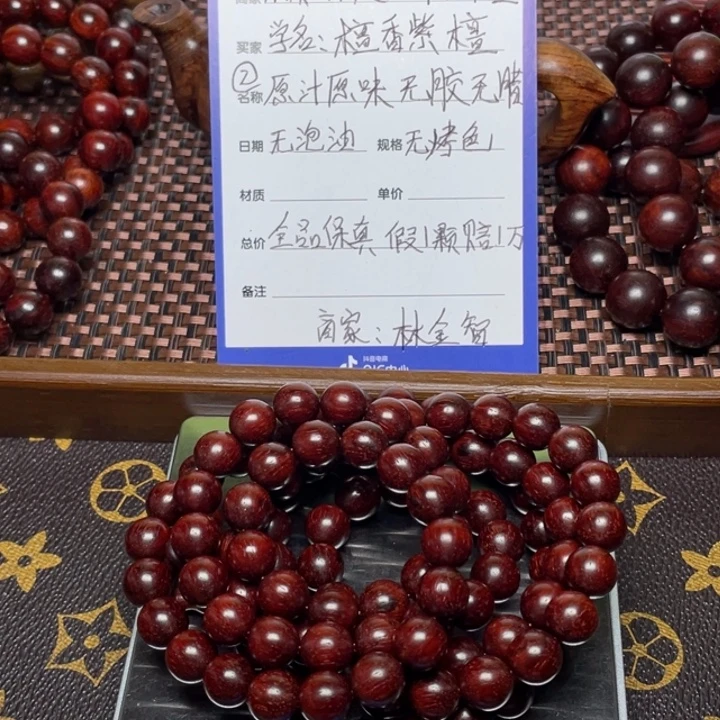 买家 学名：檀香紫檀
②
名称 原汁原味 无胶无腊
日期 无泡油 规格 无烤色
材质 单价
总价 全品保真 假1颗赔1万
备注
商家：林全智
抖音电商